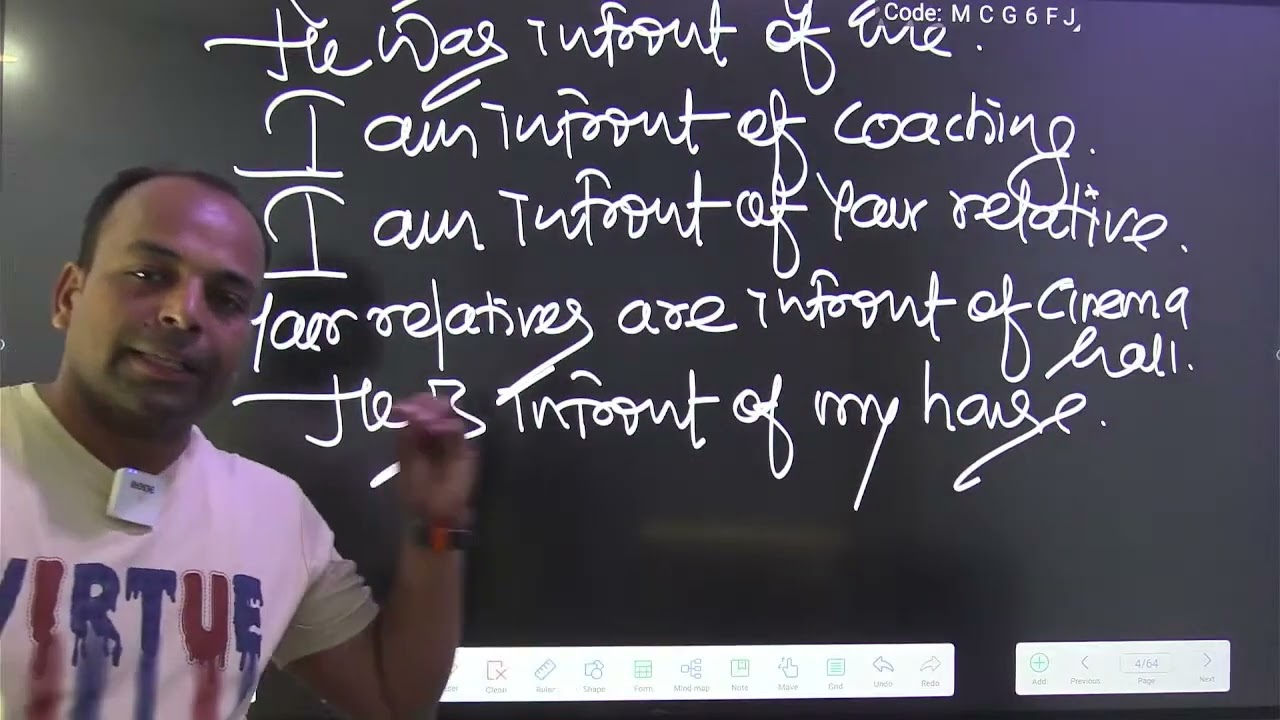 Code: M C G 6 F J
He was infront of me.
I am infront of coaching.
I am infront of your relative.
Your relatives are infront of cinema
hall.
He is infront of my house.
VIRTUE
Clean Ruler Shape Form Mind map Note Move Grid Undo Redo
Add Previous 4/64 Page Next